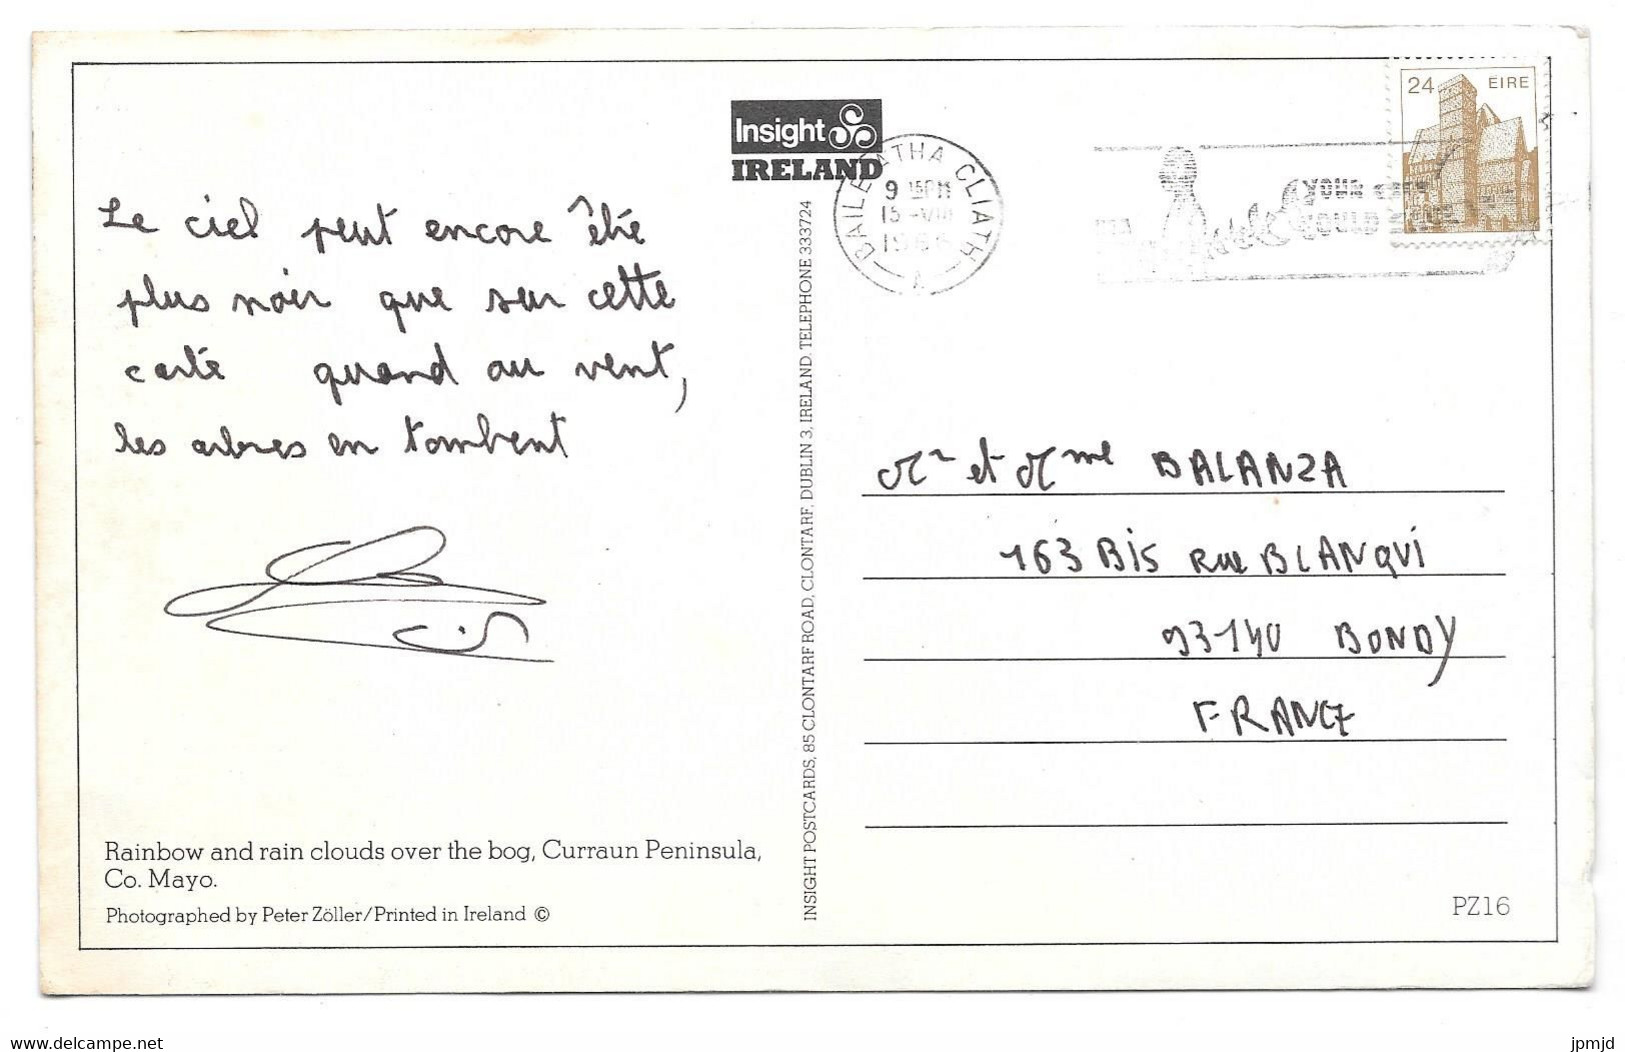 Insight
IRELAND
BAILE ATHA CLIATH
9 15PM
15 VIII
A
YOUR
COULD
24 EIRE
Le ciel peut encore être
plus noir que sur cette
carte quand au vent,
les arbres en tombent
INSIGHT POSTCARDS, 85 CLONTARF ROAD, CLONTARF, DUBLIN 3, IRELAND. TELEPHONE 333724
Mr et Mme BALANZA
163 Bis Rue BLANQVI
93140 BONDY
FRANCE
Rainbow and rain clouds over the bog, Curraun Peninsula,
Co. Mayo.
Photographed by Peter Zöller/Printed in Ireland ©
PZ16
www.delcampe.net
jpmjd